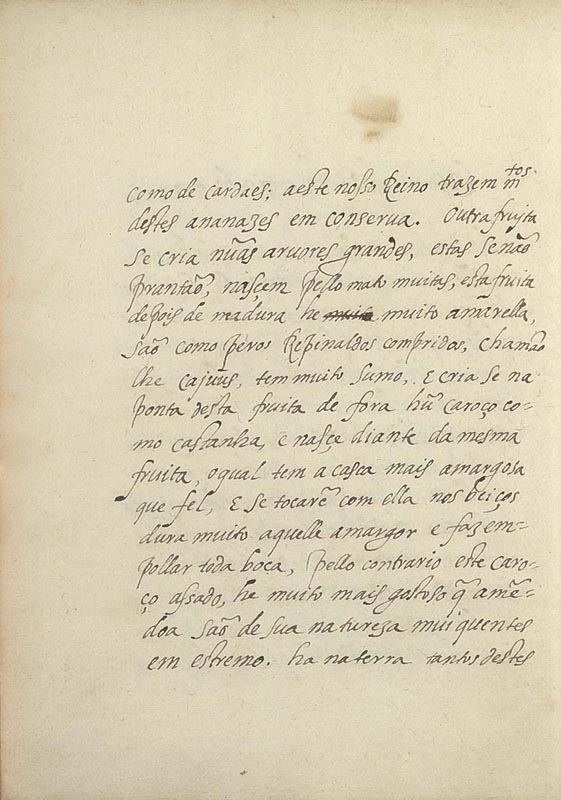 como de cardaes; aeste nosso Reino trazem mtos.
destes ananazes em conserva. Outra fruita
se cria nũas arvores grandes, estas senão
prantão, nascem pello mato muitas, esta fruita
depois de madura he muito amarella,
são como peros Repinaldos compridos, chamão
lhe cajuus, tem muito sumo, E cria se na
ponta desta fruita de fora hũ caroço co-
mo castanha, e nasçe diante da mesma
fruita, oqual tem a casca mais amargosa
que fel, E se tocarẽ com ella nos beiços
dura muito aquelle amargor e faz em=
pollar toda boca, pello contrario este caro-
ço assado, he muito mais gostoso q̃ amẽ=
doa são de sua natureza mui quentes
em estremo. ha na terra tantos destes